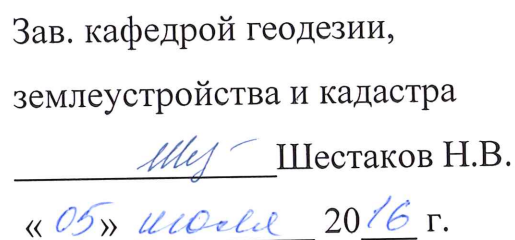 Зав. кафедрой геодезии,
землеустройства и кадастра
Шестаков Н.В.
« 05 » июля 2016 г.